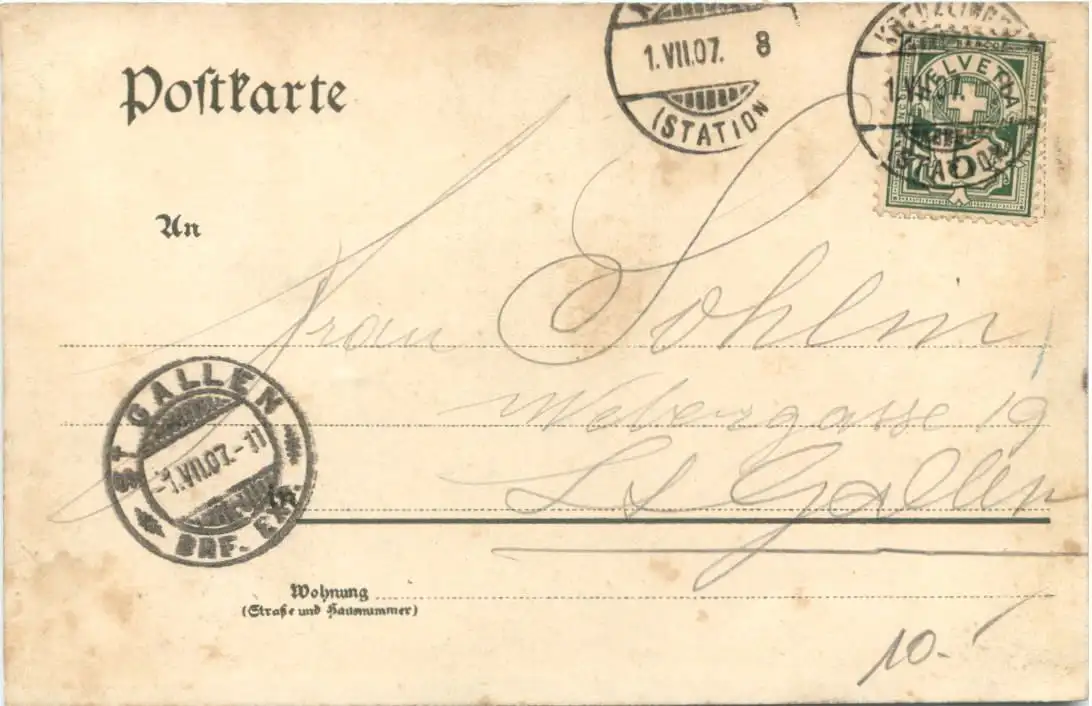 Postkarte
1.VII.07. 8
(STATION
KREUZLINGEN
1.VII.07.
(STATION)
HELVETIA
5
An
Frau Sohlm
Webergasse 19
St Gallen
ST. GALLEN
-1.VII.07.-11
BRF. EXP.
Wohnung
(Straße und Hausnummer)
10.-